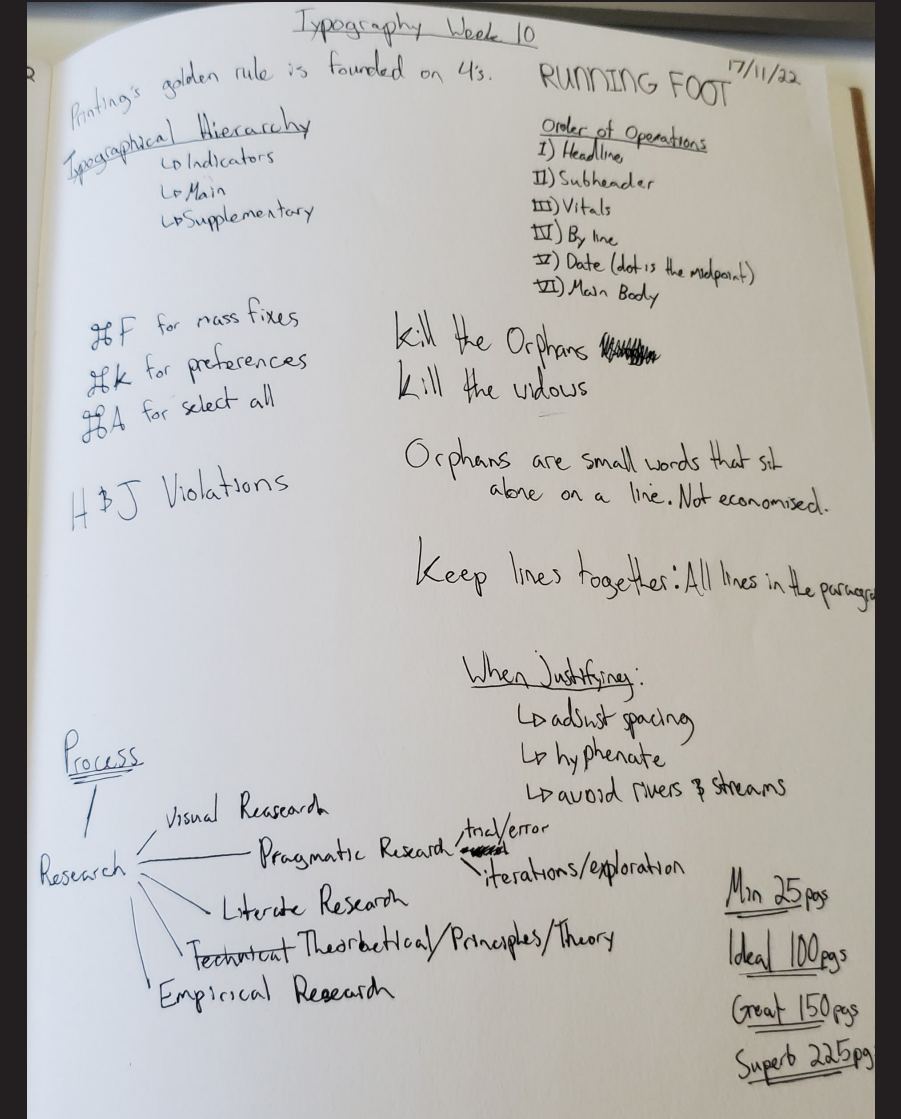 Typography Week 10
17/11/22
Printing's golden rule is founded on 4's.
RUNNING FOOT
Typographical Hierarchy
↳ Indicators
↳ Main
↳ Supplementary
Order of Operations
I) Headline
II) Subheader
III) Vitals
IV) By line
V) Date (dot is the midpoint)
VI) Main Body
⌘F for mass fixes
⌘K for preferences
⌘A for select all
H&J Violations
Kill the Orphans
Kill the widows
Orphans are small words that sit
alone on a line. Not economised.
Keep lines together: All lines in the paragra
When Justifying:
↳ adjust spacing
↳ hyphenate
↳ avoid rivers & streams
Process
Research
Visual Reasearch
Pragmatic Research
trial/error
iterations/exploration
Literate Research
Technical Theorhetical/Principles/Theory
Empirical Research
Min 25pgs
Ideal 100pgs
Great 150pgs
Superb 225pg